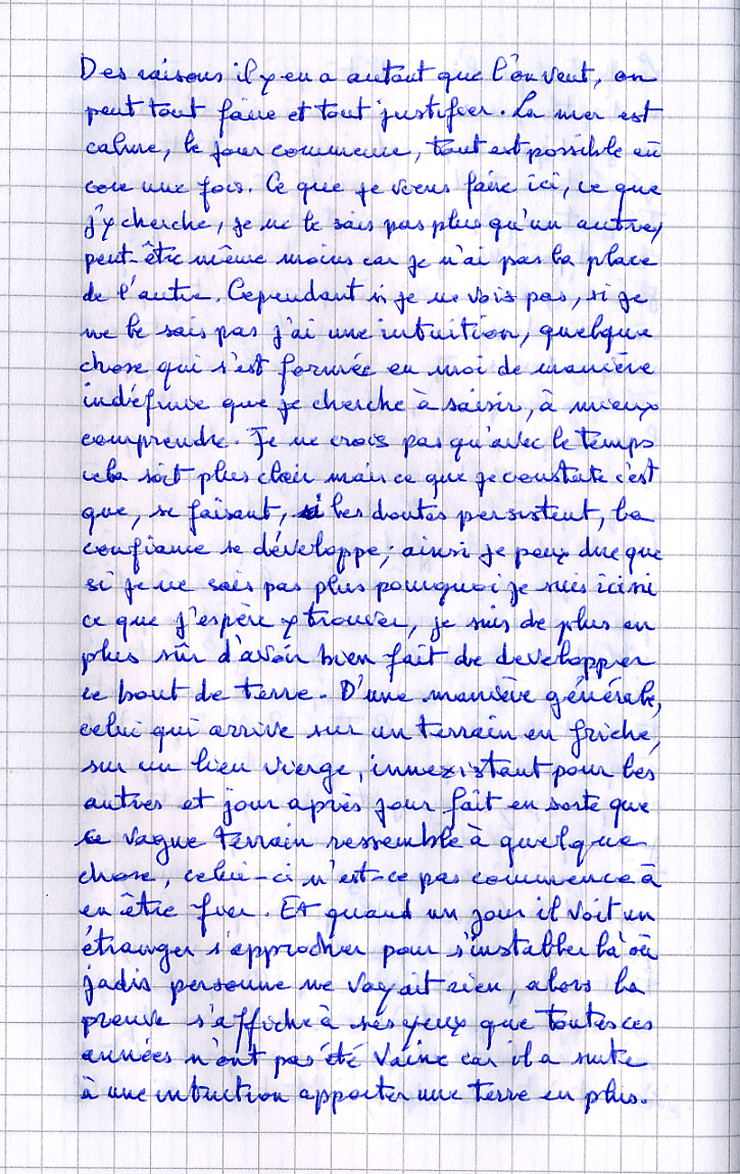 Des raisons il y en a autant que l'on veut, on
peut tout faire et tout justifier. La mer est
calme, le jour commence, tout est possible en
core une fois. Ce que je viens faire ici, ce que
j'y cherche, je ne le sais pas plus qu'un autre,
peut-être même moins car je n'ai pas la place
de l'autre. Cependant si je ne vois pas, si je
ne le sais pas j'ai une intuition, quelque
chose qui s'est formée en moi de manière
indéfinie que je cherche à saisir, à mieux
comprendre. Je ne crois pas qu'avec le temps
cela soit plus clair mais ce que je constate c'est
que, se faisant, si les doutes persistent, la
confiance se développe; ainsi je peux dire que
si je ne sais pas plus pourquoi je suis ici ni
ce que j'espère y trouver, je suis de plus en
plus sûr d'avoir bien fait de developper
ce bout de terre. D'une manière générale,
celui qui arrive sur un terrain en friche,
sur un lieu vierge, innexistant pour les
autres et jour après jour fait en sorte que
ce vague terrain ressemble à quelque
chose, celui-ci n'est-ce pas commence à
en être fier. Et quand un jour il voit un
étranger s'approcher pour s'installer là où
jadis personne ne voyait rien, alors la
preuve s'affiche à ses yeux que toutes ces
années n'ont pas été vaine car il a suite
à une intuiction apporter une terre en plus.